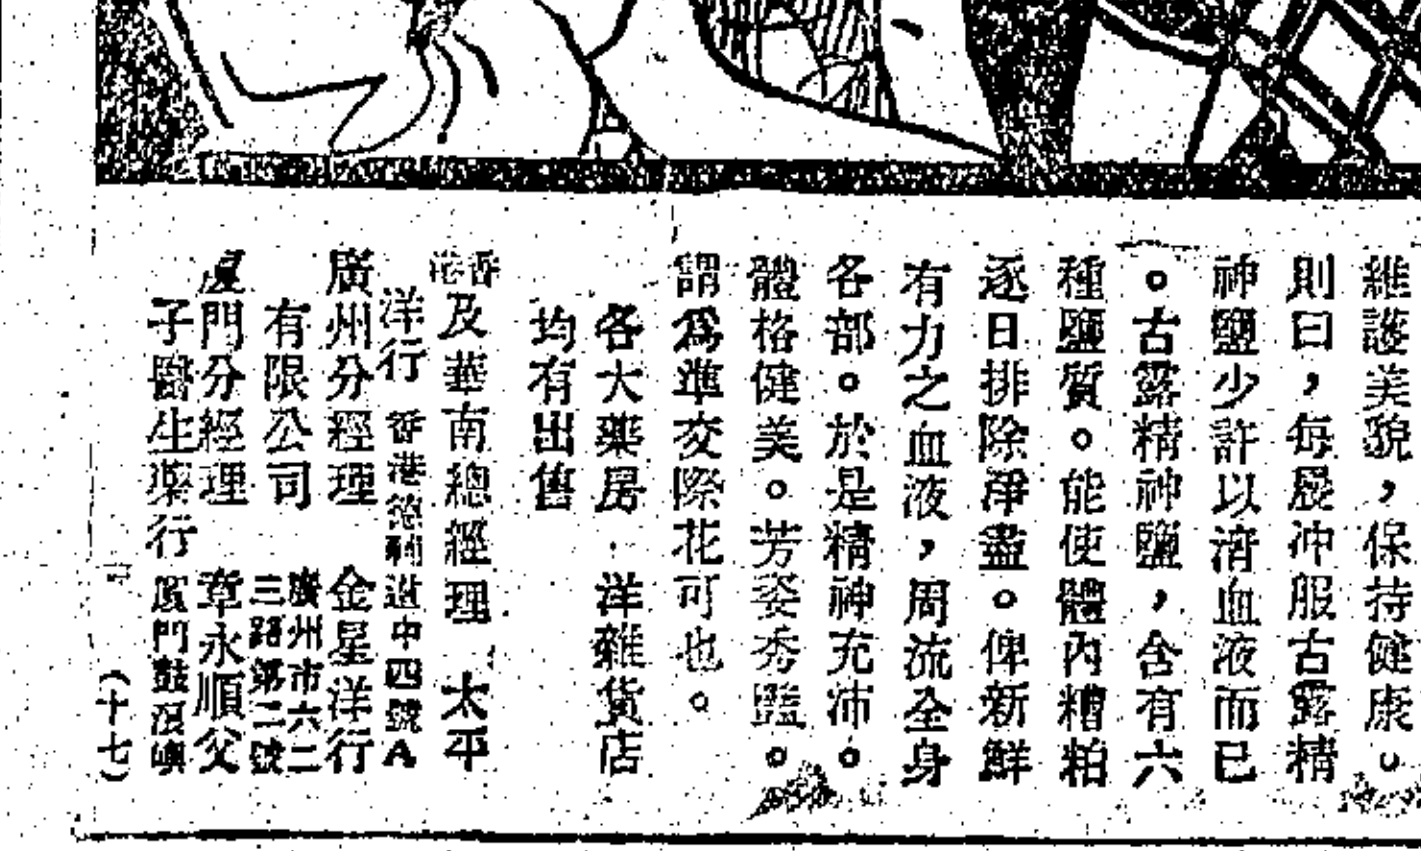 維護美貌，保持健康。
則曰，每晨冲服古露精
神鹽少許以清血液而已
。古露精神鹽，含有六
種鹽質。能使體內糟粕
逐日排除淨盡。俾新鮮
有力之血液，周流全身
各部。於是精神充沛。
體格健美。芳姿秀豔。
謂爲準交際花可也。
各大藥房．洋雜貨店
均有出售
香港及華南總經理 太平
洋行 香港德輔道中四號A
廣州分經理 金星洋行
有限公司 廣州市六二
三路第二號
廈門分經理 章永順父
子醫生藥行 廈門鼓浪嶼
（十七）